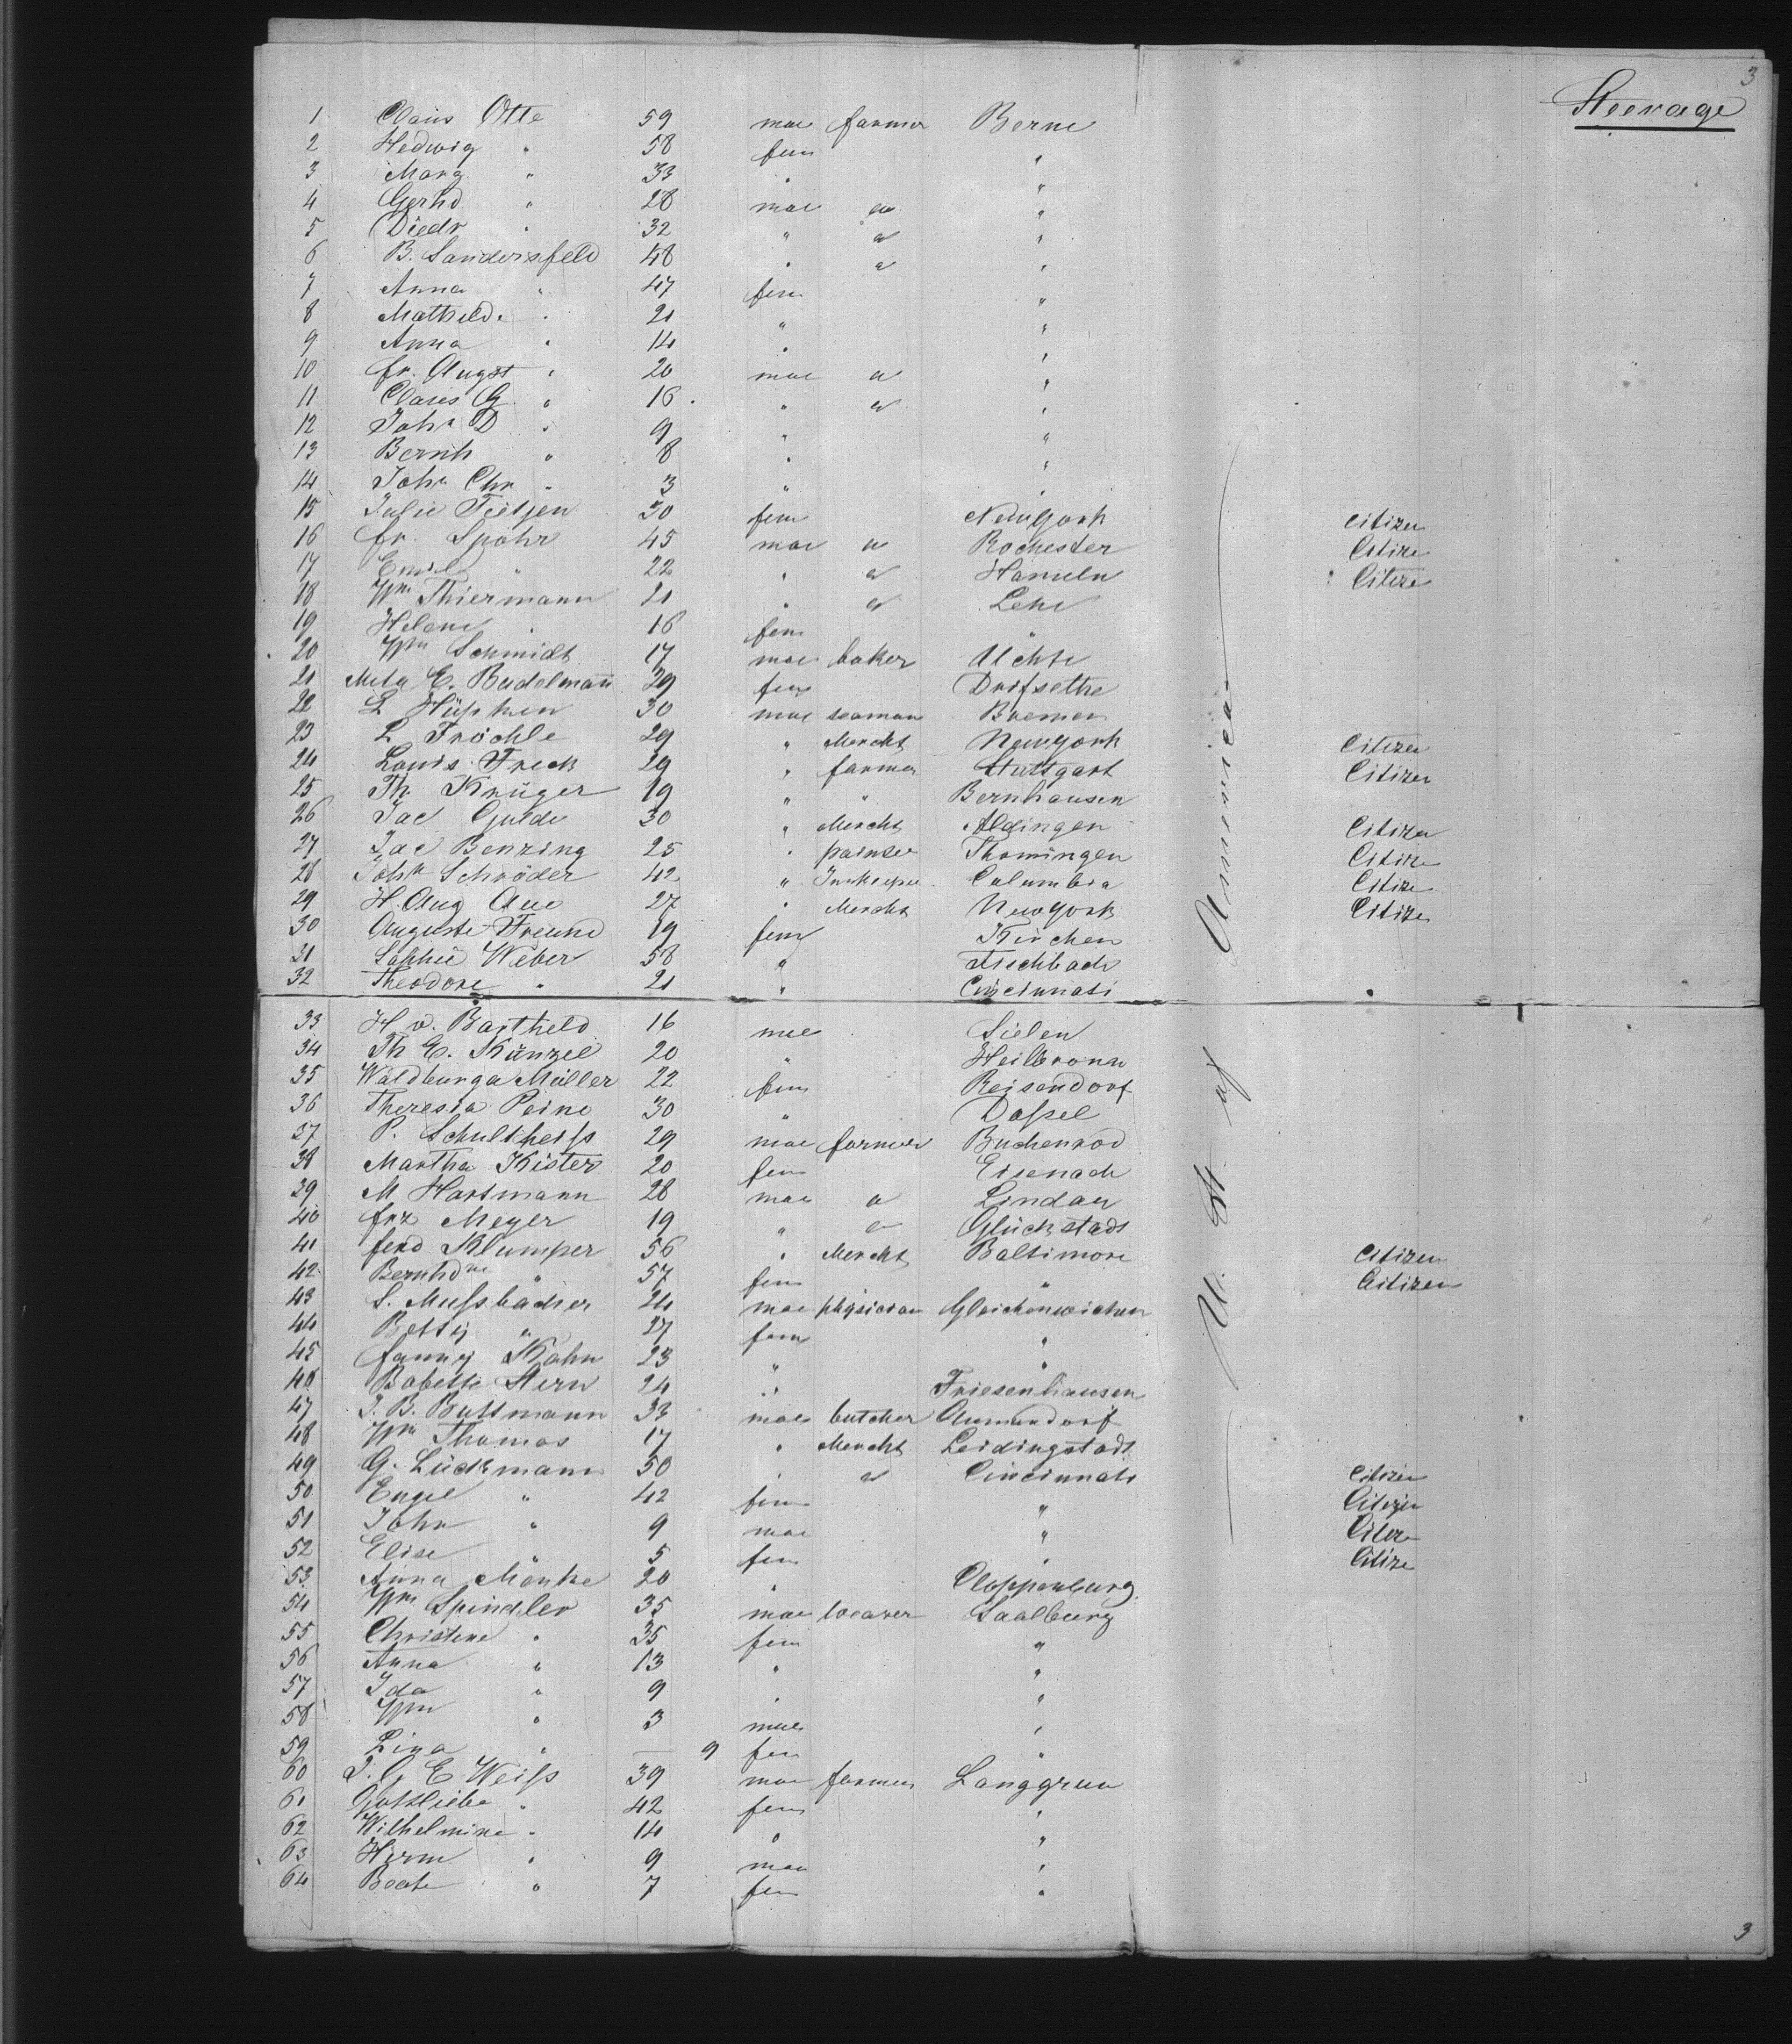 3
Steerage
1 Claus Otte 59 mae farmer Berne
2 Hedwig " 58 fem "
3 Marg " 33 " "
4 Gerhd " 28 mae " "
5 Diedr " 32 " " "
6 B. Sandersfeld 48 " " "
7 Anna " 47 fem "
8 Mathilde " 21 " "
9 Anna " 14 " "
10 Fr. Augst " 20 mae " "
11 Claus G. " 16 " " "
12 John D " 9 " "
13 Bernh " 8 " "
14 John Chr " 3 " "
15 Julie Tietjen 30 fem NewYork Citizen
16 Fr. Spohr 45 mae " Rochester Citize
17 Emil " 22 " " Hameln Citize
18 Wm Thiermann 21 " " Lehe
19 Helene " 16 fem "
20 Wm Schmidt 17 mae baker Uchte
21 Meta E. Budelmann 29 fem Drifsethe
22 L Hüpken 30 mae seaman Bremen
23 L Fröchle 29 " Mercht NewYork Citizen
24 Louis Frick 29 " farmer Stuttgart Citizen
25 Th. Krüger 19 " " Bernhausen
26 Jac Gulde 30 " Mercht Aldingen Citizen
27 Jac Benzing 25 " painter Thomingen Citize
28 John Schröder 42 " Innkeeper Columbia Citize
29 H. Aug Aue 27 " Mercht NewYork Citize
30 Auguste Freund 19 fem Kirchen
31 Sophie Weber 58 " Fischbach
32 Theodore " 21 " Cincinnati
33 H v. Bartheld 16 mae Sielen
34 Th E. Künzel 20 " Heilbronn
35 Waldburga Müller 22 fem Reisendorf
36 Theresia Peine 30 " Dassel
37 P. Schultheiss 29 mae farmer Buchenrod
38 Martha Kister 20 fem Eisenach
39 M Hartmann 28 mae " Lindau
40 Frz Meyer 19 " " Glückstadt
41 Ferd Klumper 56 " Mercht Baltimore Citizen
42 Bernhdne " 57 fem " Citizen
43 S. Mussbacher 24 mae physician Gleichenwiesen
44 Betty " 27 fem "
45 Fanny Kahn 23 " "
46 Babette Stern 24 " Friesenhausen
47 J. B. Buttmann 33 mae butcher Aumendorf
48 Wm Thomas 17 " Mercht Leidingstadt
49 G. Lückmann 50 " " Cincinnati Citizen
50 Engel " 42 fem " Citizen
51 John " 9 mae " Citize
52 Elise " 5 fem " Citize
53 Anna Manke 20 " Cloppenburg
54 Wm Spindler 35 mae weaver Saalburg
55 Christine " 35 fem "
56 Anna " 13 " "
57 Ida " 9 " "
58 Wm " 3 mae "
59 Lina " — 9 fem "
60 J. G E Weiss 39 mae farmer Langgrun
61 Gottliebe " 42 fem "
62 Wilhelmine " 14 " "
63 Herm " 9 mae "
64 Beate " 7 fem "
U. St. of America
3